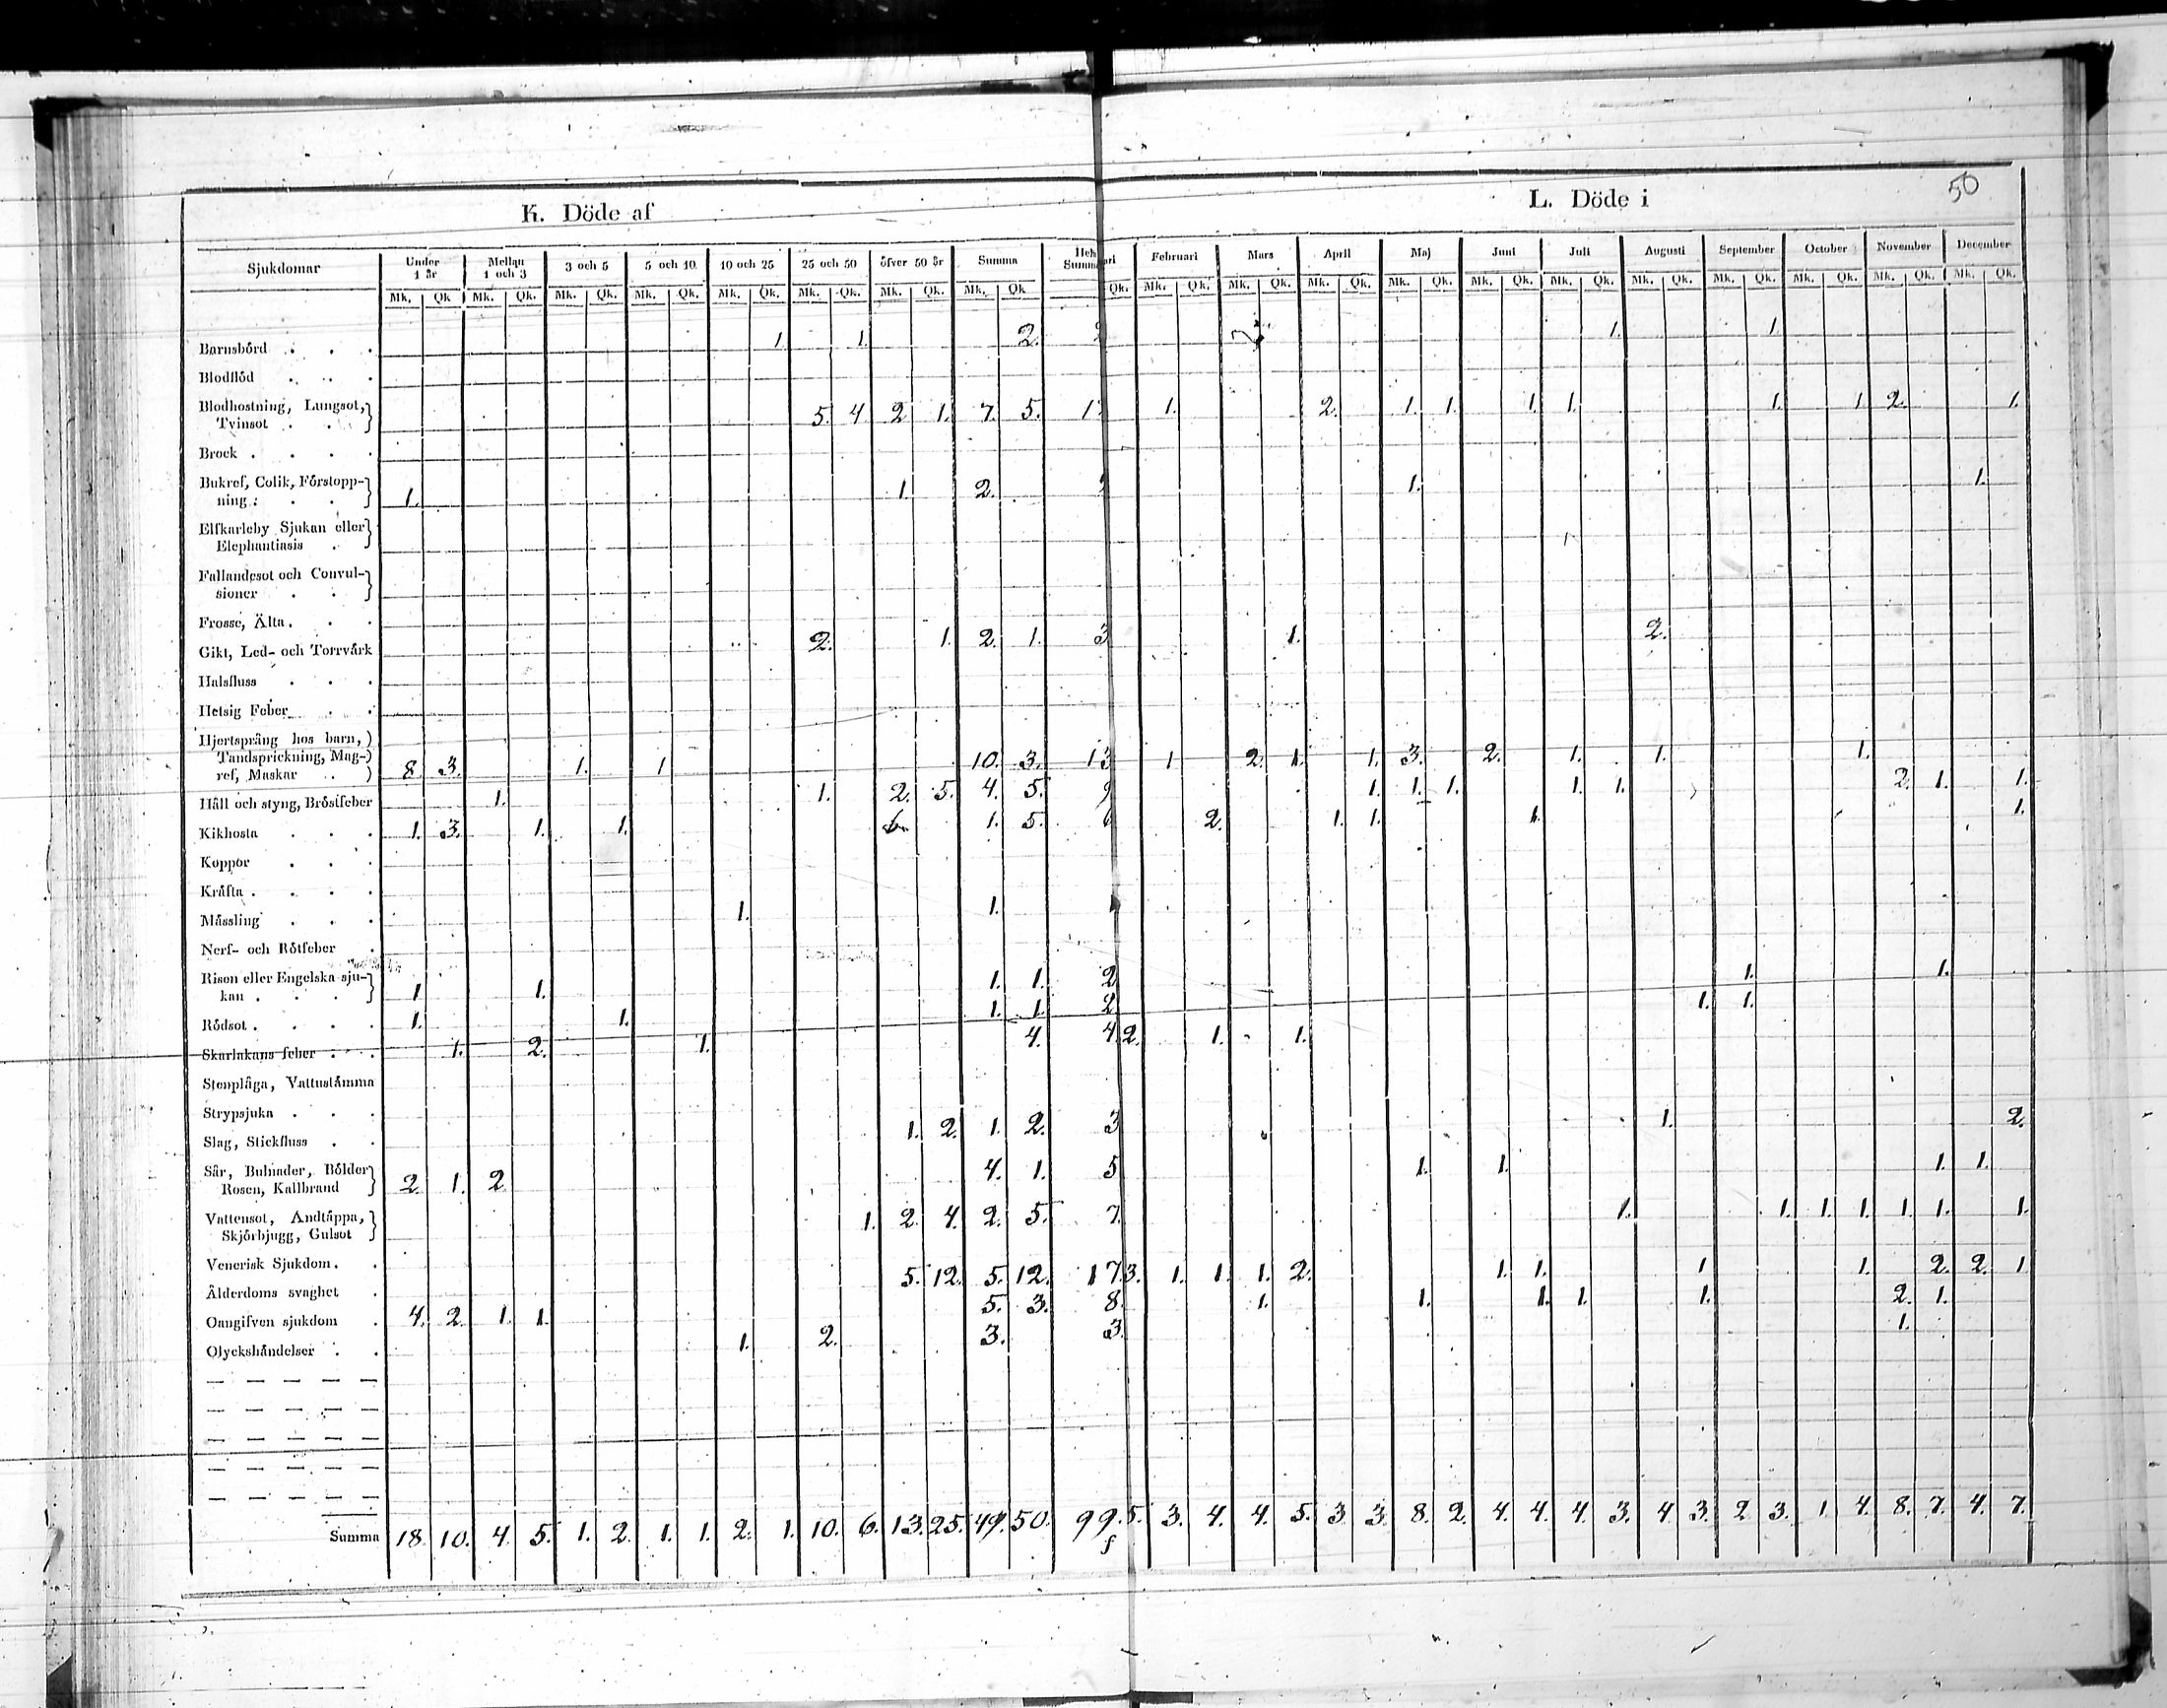 50
K. Döde af L. Döde i
Sjukdomar Under 1 år Mellan 1 och 3 3 och 5 5 och 10 10 och 25 25 och 50 öfver 50 år Summa Hel Summa ari Februari Mars April Maj Juni Juli Augusti September October November December
Mk. Qk Mk. Qk. Mk. Qk. Mk. Qk. Mk. Qk. Mk. Qk. Mk. Qk. Mk. Qk Qk. Mk. Qk. Mk. Qk. Mk. Qk. Mk. Qk. Mk. Qk. Mk. Qk. Mk. Qk. Mk. Qk. Mk. Qk. Mk. Qk. Mk. Qk.
Barnsbörd . . . 1. 1. 2. 2 1. 1.
Blodflöd . . .
Blodhostning, Lungsot,
Tvinsot . . 5. 4. 2 1. 7. 5. 1 1. 2. 1. 1. 1. 1. 1. 1 2. 1.
Brock . . . .
Bukref, Colik, Förstopp-
ning . . . 1. 1. 2. 1. 1.
Elfkarleby Sjukan eller
Elephantiasis .
Fallandesot och Convul-
sioner . .
Frosse, Älta . . .
Gikt, Led- och Torrvärk 2. 1. 2. 1. 3 1. 2.
Halsfluss . . .
Hetsig Feber . .
Hjertsprång hos barn,
Tandsprickning, Mag-
ref, Maskar . . 8. 3. 1. 1 10. 3. 13 1 2. 1. 1. 3. 2. 1. 1. 1.
Håll och styng, Bröstfeber 1. 1. 2. 5. 4. 5. 9 1. 1. 1. 1. 1. 2. 1. 1.
Kikhosta . . . 1. 3. 1. 1. 1. 5. 6 2. 1. 1. 1. 1.
Koppor . . .
Kräfta . . . .
Mässling . . . 1. 1. 1
Nerf- och Rötfeber .
Risen eller Engelska sju-
kan . . . 1. 1. 1. 1. 2 1. 1.
Rödsot . . . . 1. 1. 1. 1. 2 1. 1.
Skarlakans feber . . 1. 2. 1. 4. 4. 2. 1. 1.
Stenplåga, Vattustämma
Strypsjuka . . .
Slag, Stickfluss . . 1. 2. 1. 2. 3 1. 2.
Sår, Bulnader, Bölder
Rosen, Kallbrand 2. 1. 2 4. 1. 5 1. 1. 1. 1.
Vattensot, Andtäppa,
Skjörbjugg, Gulsot 1. 2. 4. 2. 5. 7. 1. 1. 1. 1. 1. 1. 1.
Venerisk Sjukdom . .
Ålderdoms svaghet . 5. 12. 5. 12. 17. 3. 1. 1. 1. 2. 1. 1. 1 1. 2. 2. 1
Oangifven sjukdom . 4. 2. 1. 1. 5. 3. 8. 1. 1. 1. 1. 1. 2. 1.
Olyckshändelser . . 1. 2. 3. 3. 1.
Summa 18. 10. 4. 5. 1. 2. 1. 1. 2. 1. 10. 6. 13. 25. 49. 50. 99. 5. 3. 4. 4. 5. 3. 3. 8. 2. 4. 4. 4. 3. 4. 3. 2. 3. 1. 4. 8. 7. 4. 7.